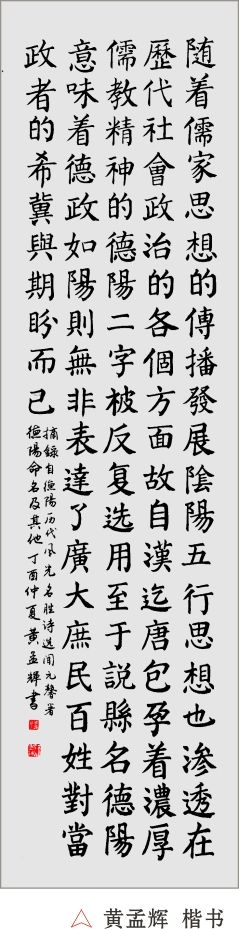 随着儒家思想的傳播發展陰陽五行思想也渗透在
歷代社會政治的各個方面故自漢迄唐包孕着濃厚
儒教精神的德陽二字被反复选用至于説縣名德陽
意味着德政如陽則無非表達了廣大庶民百姓對當
政者的希冀與期盼而已
摘錄自德陽历代风光名胜诗选闻元馨著
德陽命名及其他丁酉仲夏黄孟輝書
△ 黄孟辉 楷书